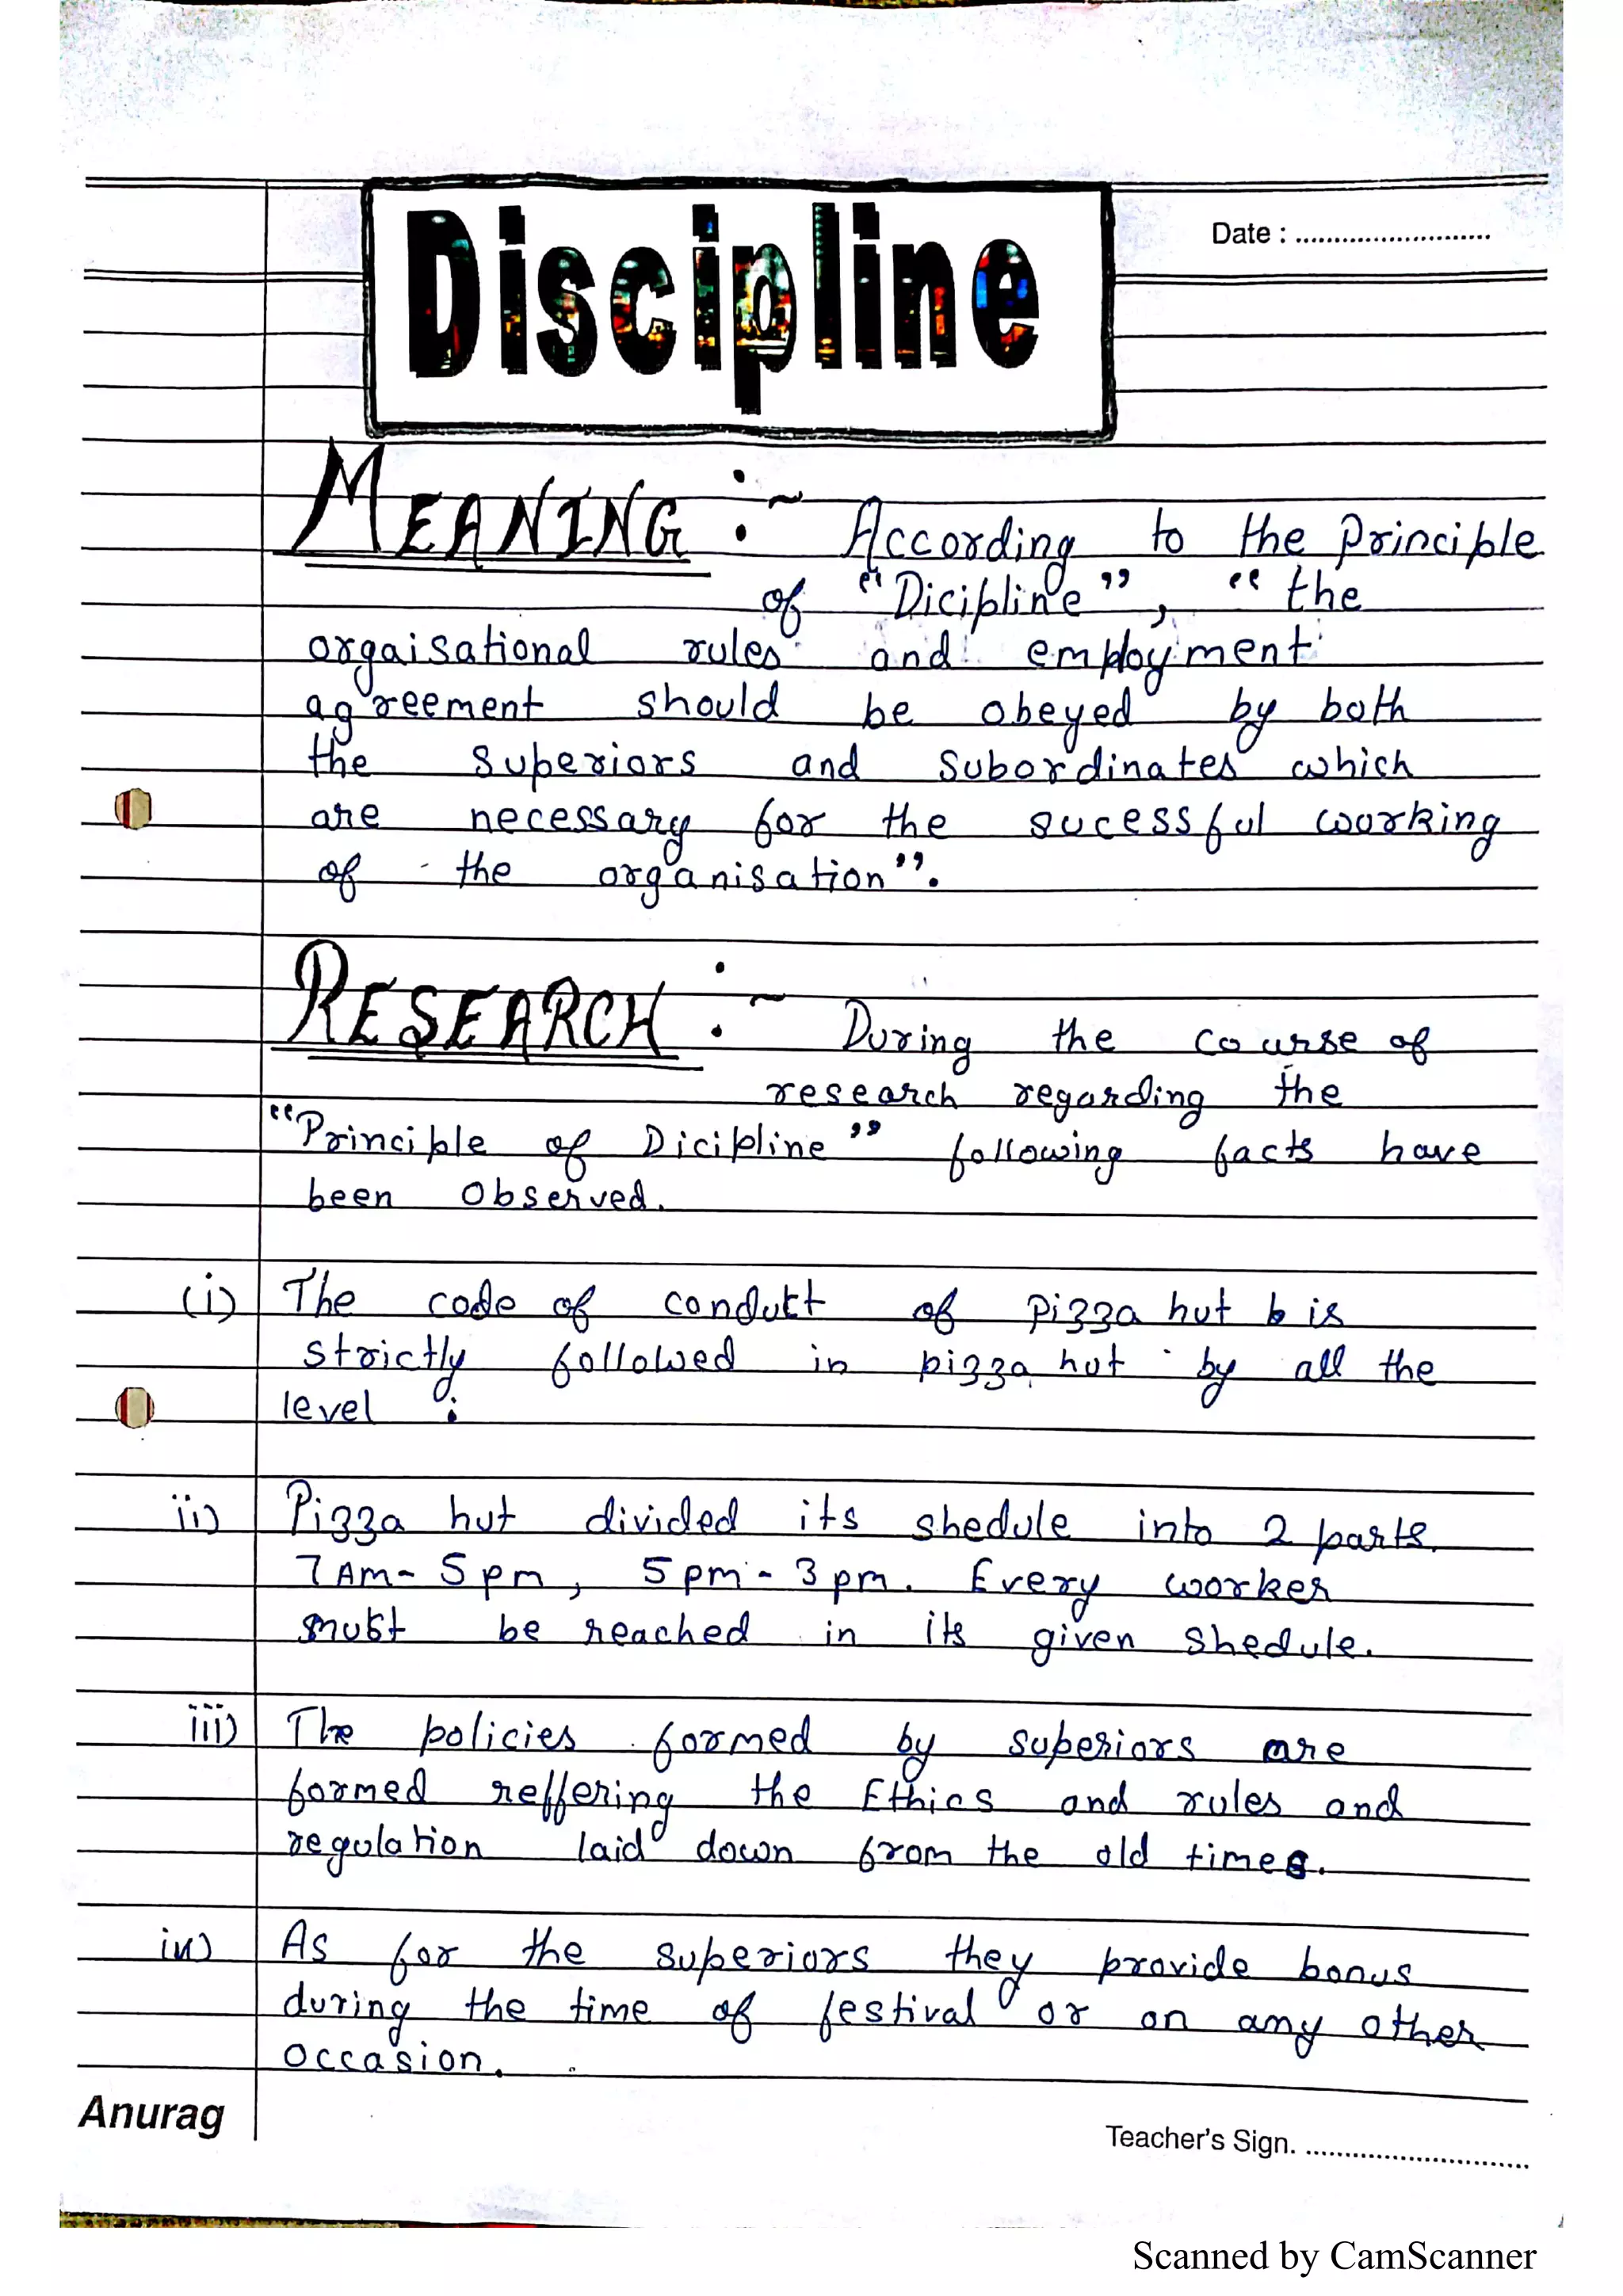 Discipline
Date : ..........................
MEANING :~ According to the Principle
of "Dicipline", "the
orgaisational rules and employment
agreement should be obeyed by both
the Superiors and Subordinates which
are necessary for the sucessful working
of the organisation".
RESEARCH :~ During the course of
research regarding the
"Principle of Dicipline" following facts have
been Observed.
(i) The code of conduct of Pizza hut is
strictly followed in pizza hut by all the
level :
ii) Pizza hut divided its shedule into 2 parts.
7 AM - 5 pm, 5 pm - 3 pm. Every worker
must be reached in its given shedule.
iii) The policies formed by superiors are
formed reffering the Ethics and rules and
regulation laid down from the old times.
iv) As for the superiors they provide bonus
during the time of festival or on any other
occasion.
Anurag
Teacher's Sign. ..............................
Scanned by CamScanner